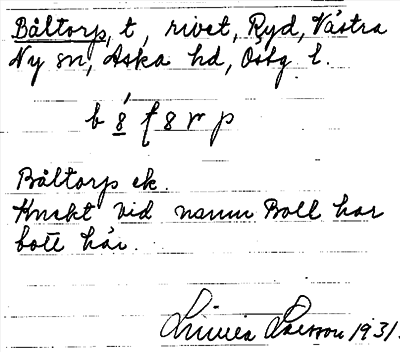 Båltorp, t, rivet, Ryd, Västra
Ny sn, Aska hd, Östg l.
Båltorp ek.
Knekt vid namn Boll har
bott här.
Linnéa Larsson 1931.